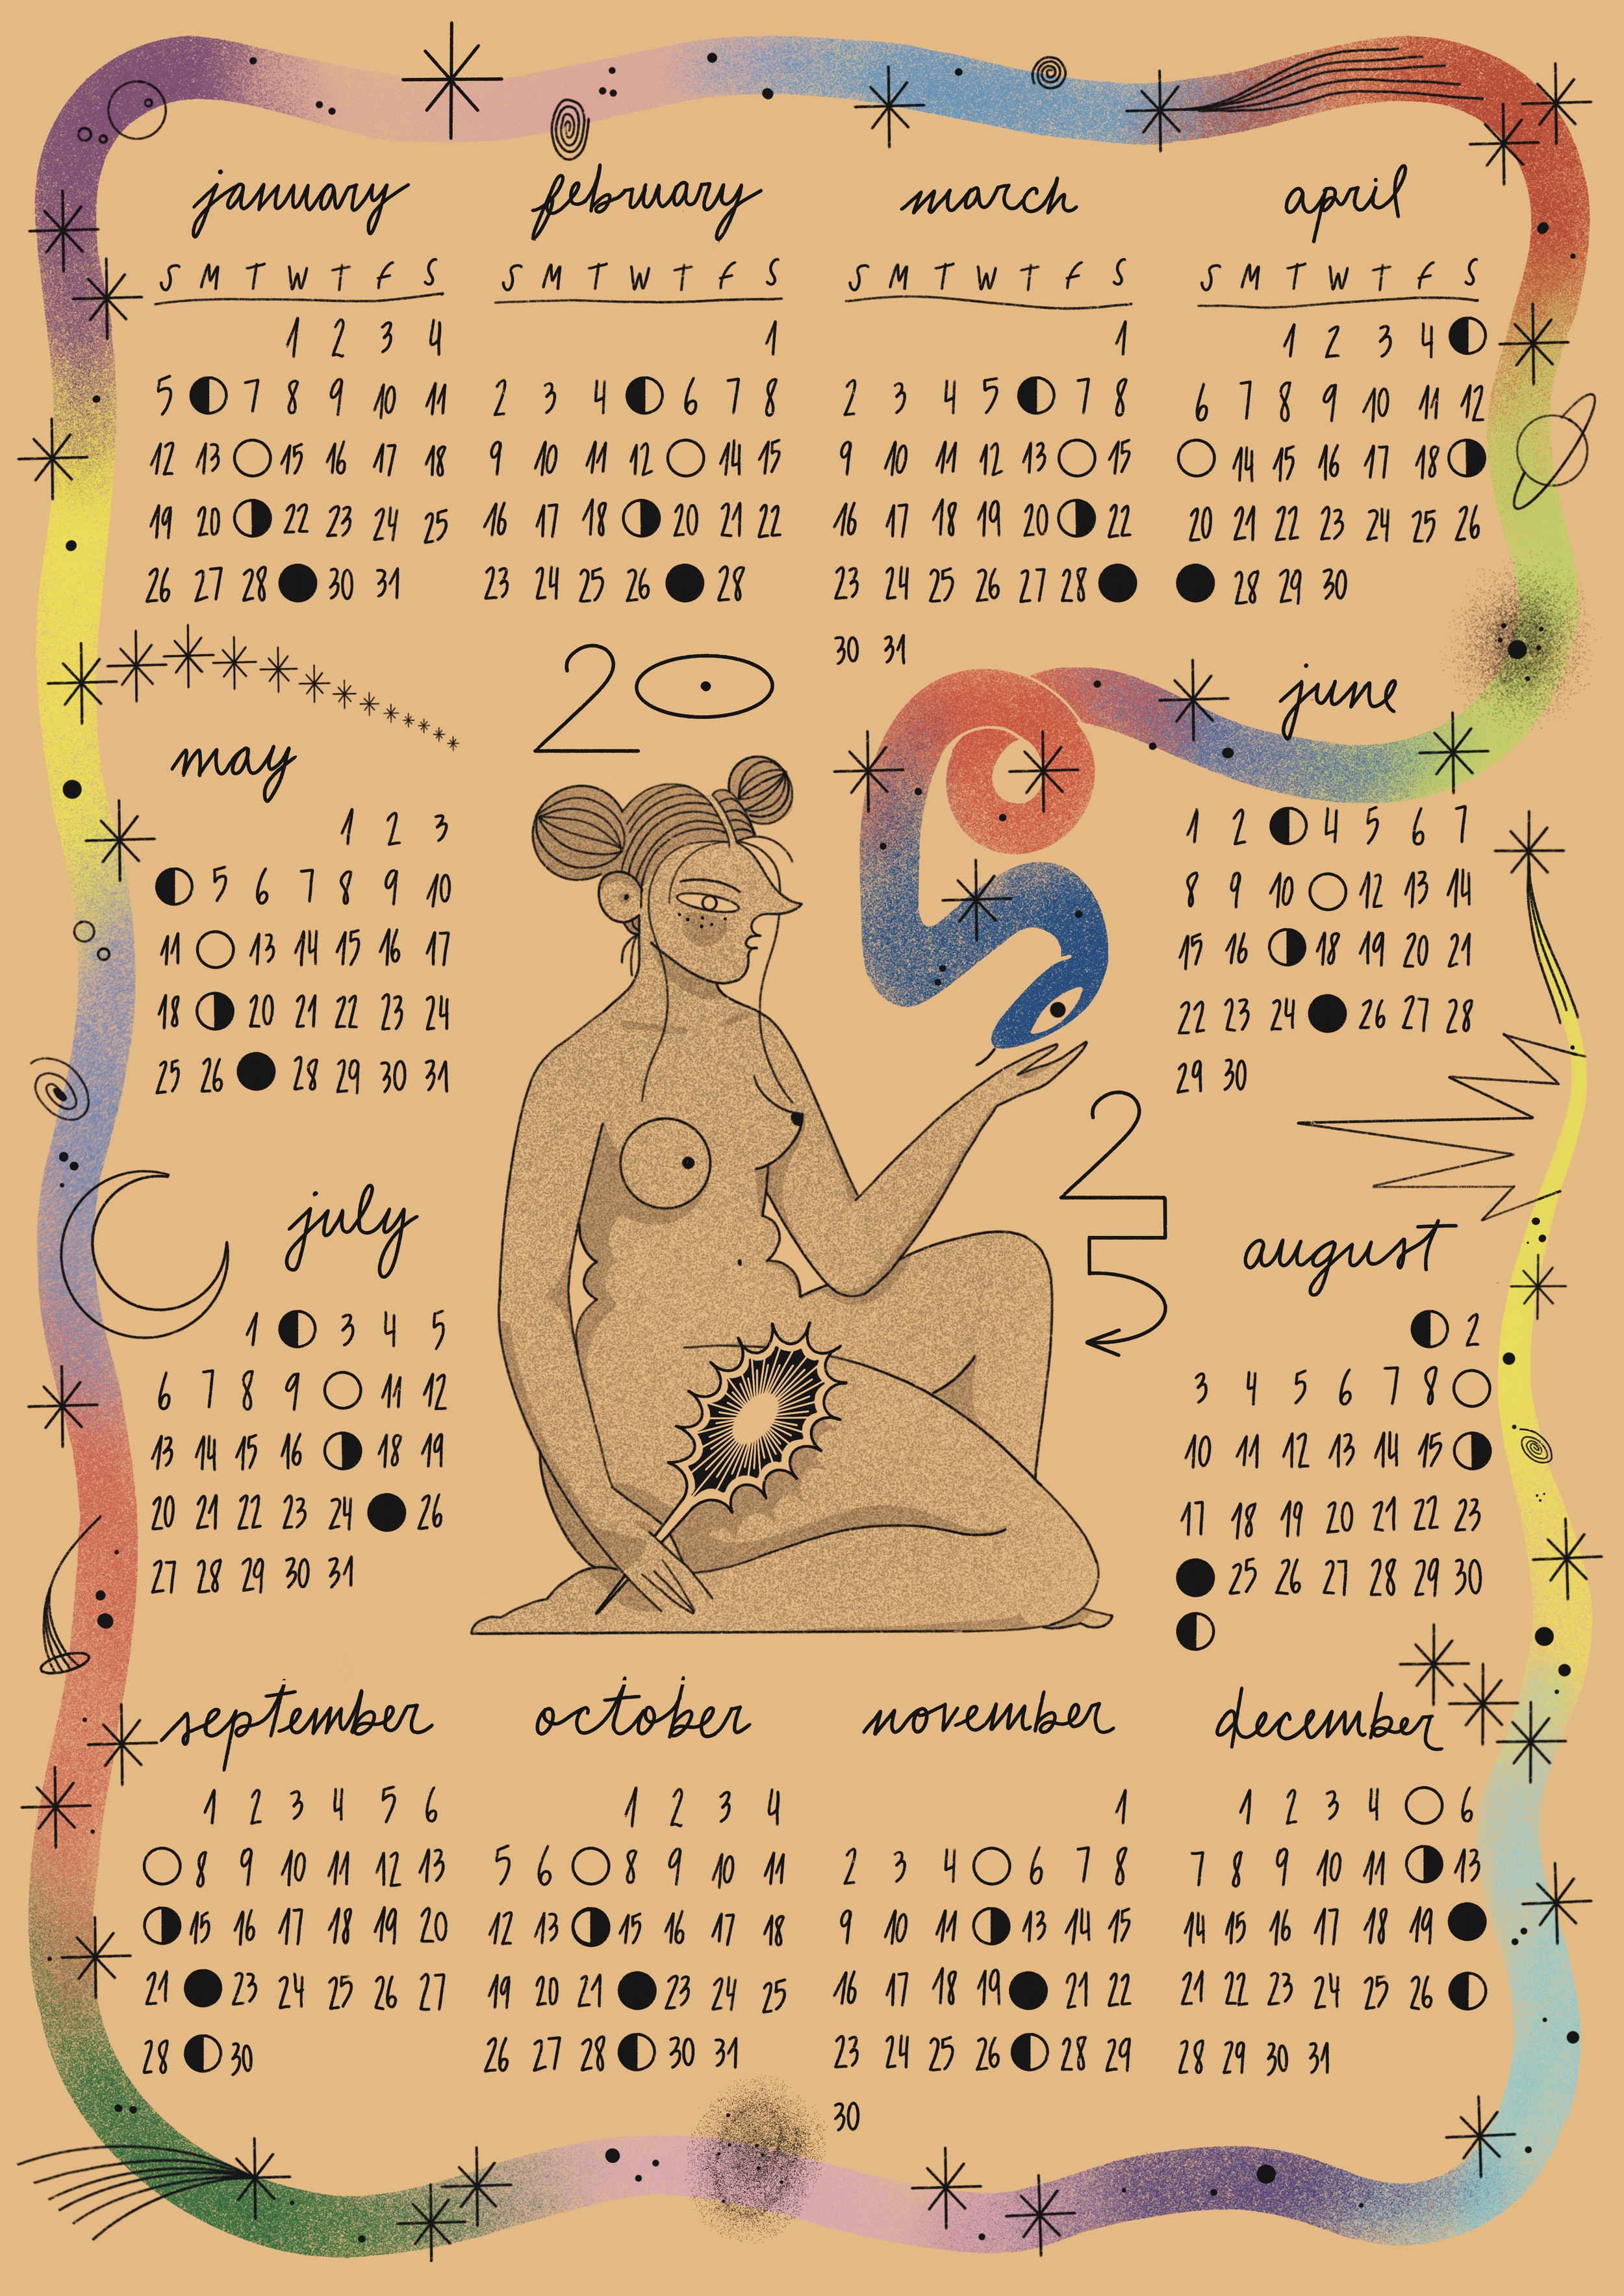 january
S M T W T F S
1 2 3 4
5 7 8 9 10 11
12 13 15 16 17 18
19 20 22 23 24 25
26 27 28 30 31
february
S M T W T F S
1
2 3 4 6 7 8
9 10 11 12 14 15
16 17 18 20 21 22
23 24 25 26 28
march
S M T W T F S
1
2 3 4 5 7 8
9 10 11 12 13 15
16 17 18 19 20 22
23 24 25 26 27 28
30 31
april
S M T W T F S
1 2 3 4
6 7 8 9 10 11 12
14 15 16 17 18
20 21 22 23 24 25 26
28 29 30
20
25
may
1 2 3
5 6 7 8 9 10
11 13 14 15 16 17
18 20 21 22 23 24
25 26 28 29 30 31
june
1 2 4 5 6 7
8 9 10 12 13 14
15 16 18 19 20 21
22 23 24 26 27 28
29 30
july
1 3 4 5
6 7 8 9 11 12
13 14 15 16 18 19
20 21 22 23 24 26
27 28 29 30 31
august
2
3 4 5 6 7 8
10 11 12 13 14 15
17 18 19 20 21 22 23
25 26 27 28 29 30
september
1 2 3 4 5 6
8 9 10 11 12 13
15 16 17 18 19 20
21 23 24 25 26 27
28 30
october
1 2 3 4
5 6 8 9 10 11
12 13 15 16 17 18
19 20 21 23 24 25
26 27 28 30 31
november
1
2 3 4 6 7 8
9 10 11 13 14 15
16 17 18 19 21 22
23 24 25 26 28 29
30
december
1 2 3 4 6
7 8 9 10 11 13
14 15 16 17 18 19
21 22 23 24 25 26
28 29 30 31